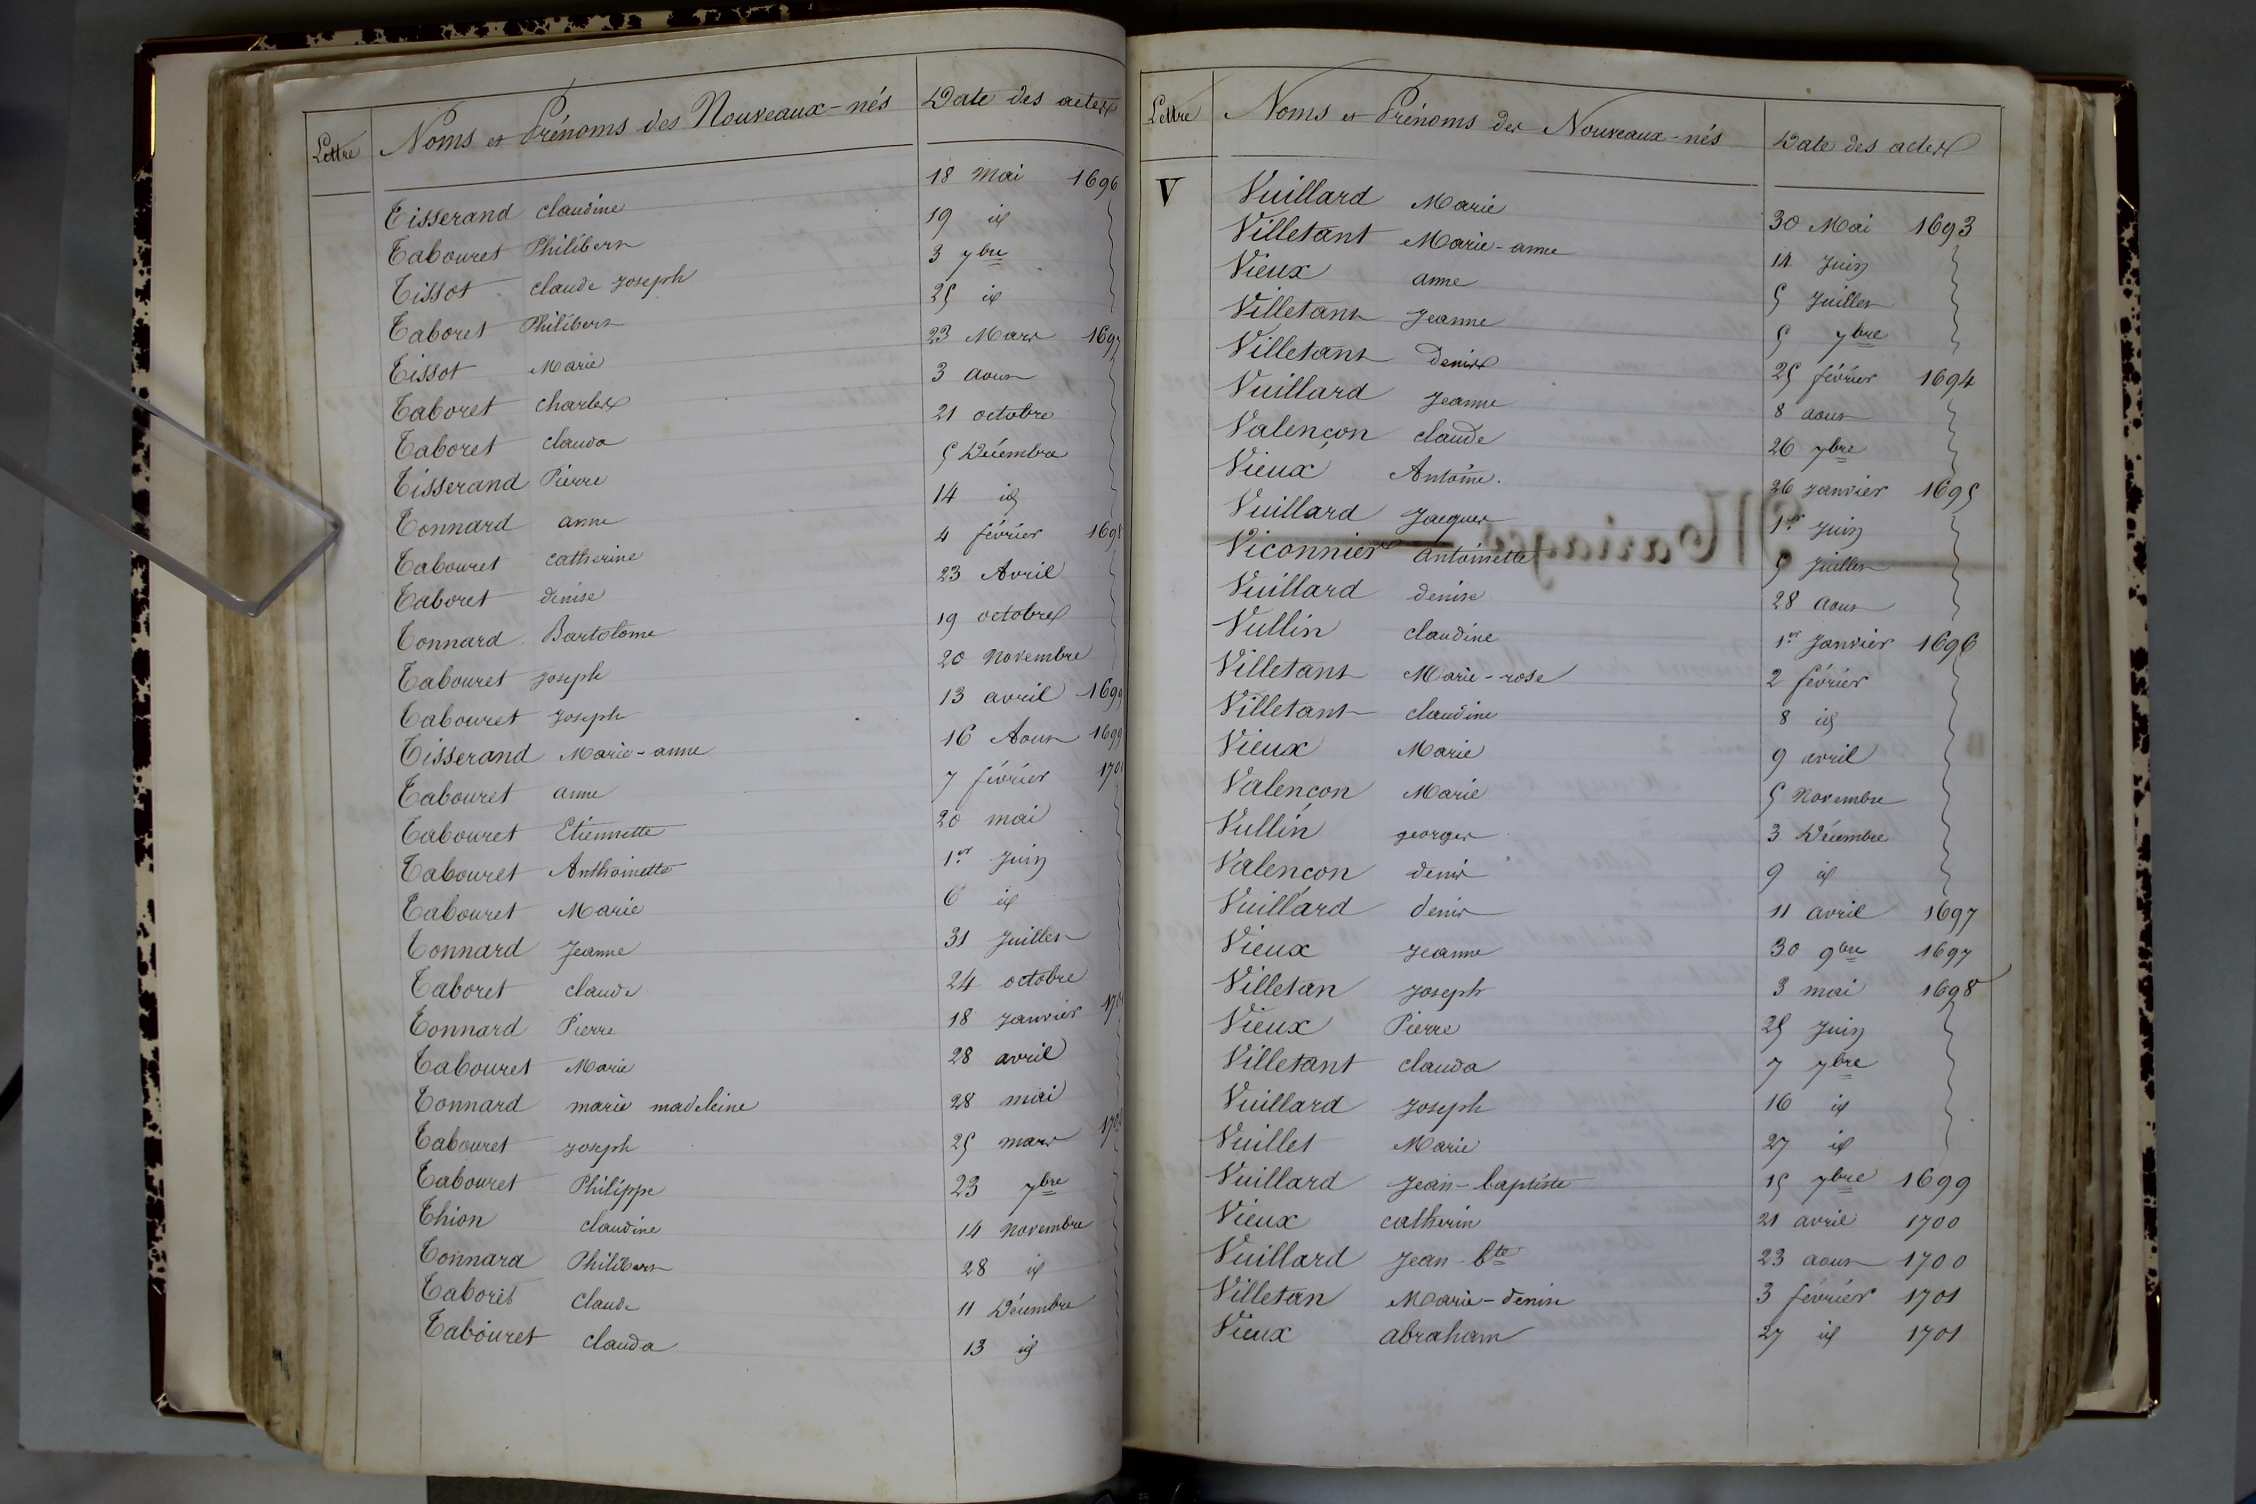 Lettre Noms et Prénoms des Nouveaux-nés Date des actes
Tisserand claudine 18 Mai 1696
Tabouret Philibert 19 id
Tissot claude Joseph 3 7bre
Taboret Philibert 25 id
Tissot Marie 23 Mars 1697
Taboret charles 3 aout
Taboret clauda 21 octobre
Tisserand Pierre 5 Décembre
Tonnard anne 14 id
Tabouret catherine 4 février 1698
Taboret denise 23 Avril
Tonnard Bartolome 19 octobre
Tabouret Joseph 20 Novembre
Tabouret Joseph 13 avril 1699
Tisserand Marie-anne 16 Aout 1699
Tabouret anne 7 février
Tabouret Etiennette 20 mai
Tabouret Anthoinette 1er Juin
Tabouret Marie 6 id
Tonnard Jeanne 31 Juillet
Taboret claude 24 octobre
Tonnard Pierre 18 Janvier
Tabouret Marie 28 avril
Tonnard marie madeleine 28 mai
Tabouret Joseph 25 mars
Tabouret Philippe 23 7bre
Thion claudine 14 Novembre
Tonnard Philibert 28 id
Taboret Claude 11 Décembre
Tabouret clauda 13 id
Lettre Noms et Prénoms des Nouveaux-nés Date des actes
V Vuillard Marie 30 Mai 1693
Villetant Marie-anne 14 Juin
Vieux anne 5 Juillet
Villetant Jeanne 5 7bre
Villetant denis 25 février 1694
Vuillard Jeanne 8 aout
Valençon claude 26 7bre
Vieux Antoine. 26 Janvier 1695
Vuillard Jacques 1er Juin
Viconnier Antoinette 5 Juillet
Vuillard denise 28 aout
Vullin claudine 1er Janvier 1696
Villetant Marie-rose 2 février
Villetant claudine 8 id
Vieux Marie 9 avril
Valençon Marie 5 Novembre
Vullin georges 3 Décembre
Valençon denis 9 id
Vuillard denis 11 avril 1697
Vieux Jeanne 30 9bre 1697
Villetan Joseph 3 mai 1698
Vieux Pierre 25 Juin
Villetant clauda 7 7bre
Vuillard Joseph 16 id
Vuillet Marie 27 id
Vuillard Jean-baptiste 15 7bre 1699
Vieux catherin 21 avril 1700
Vuillard Jean-bte 23 aout 1700
Villetan Marie-denise 3 février 1701
Vieux abraham 27 id 1701